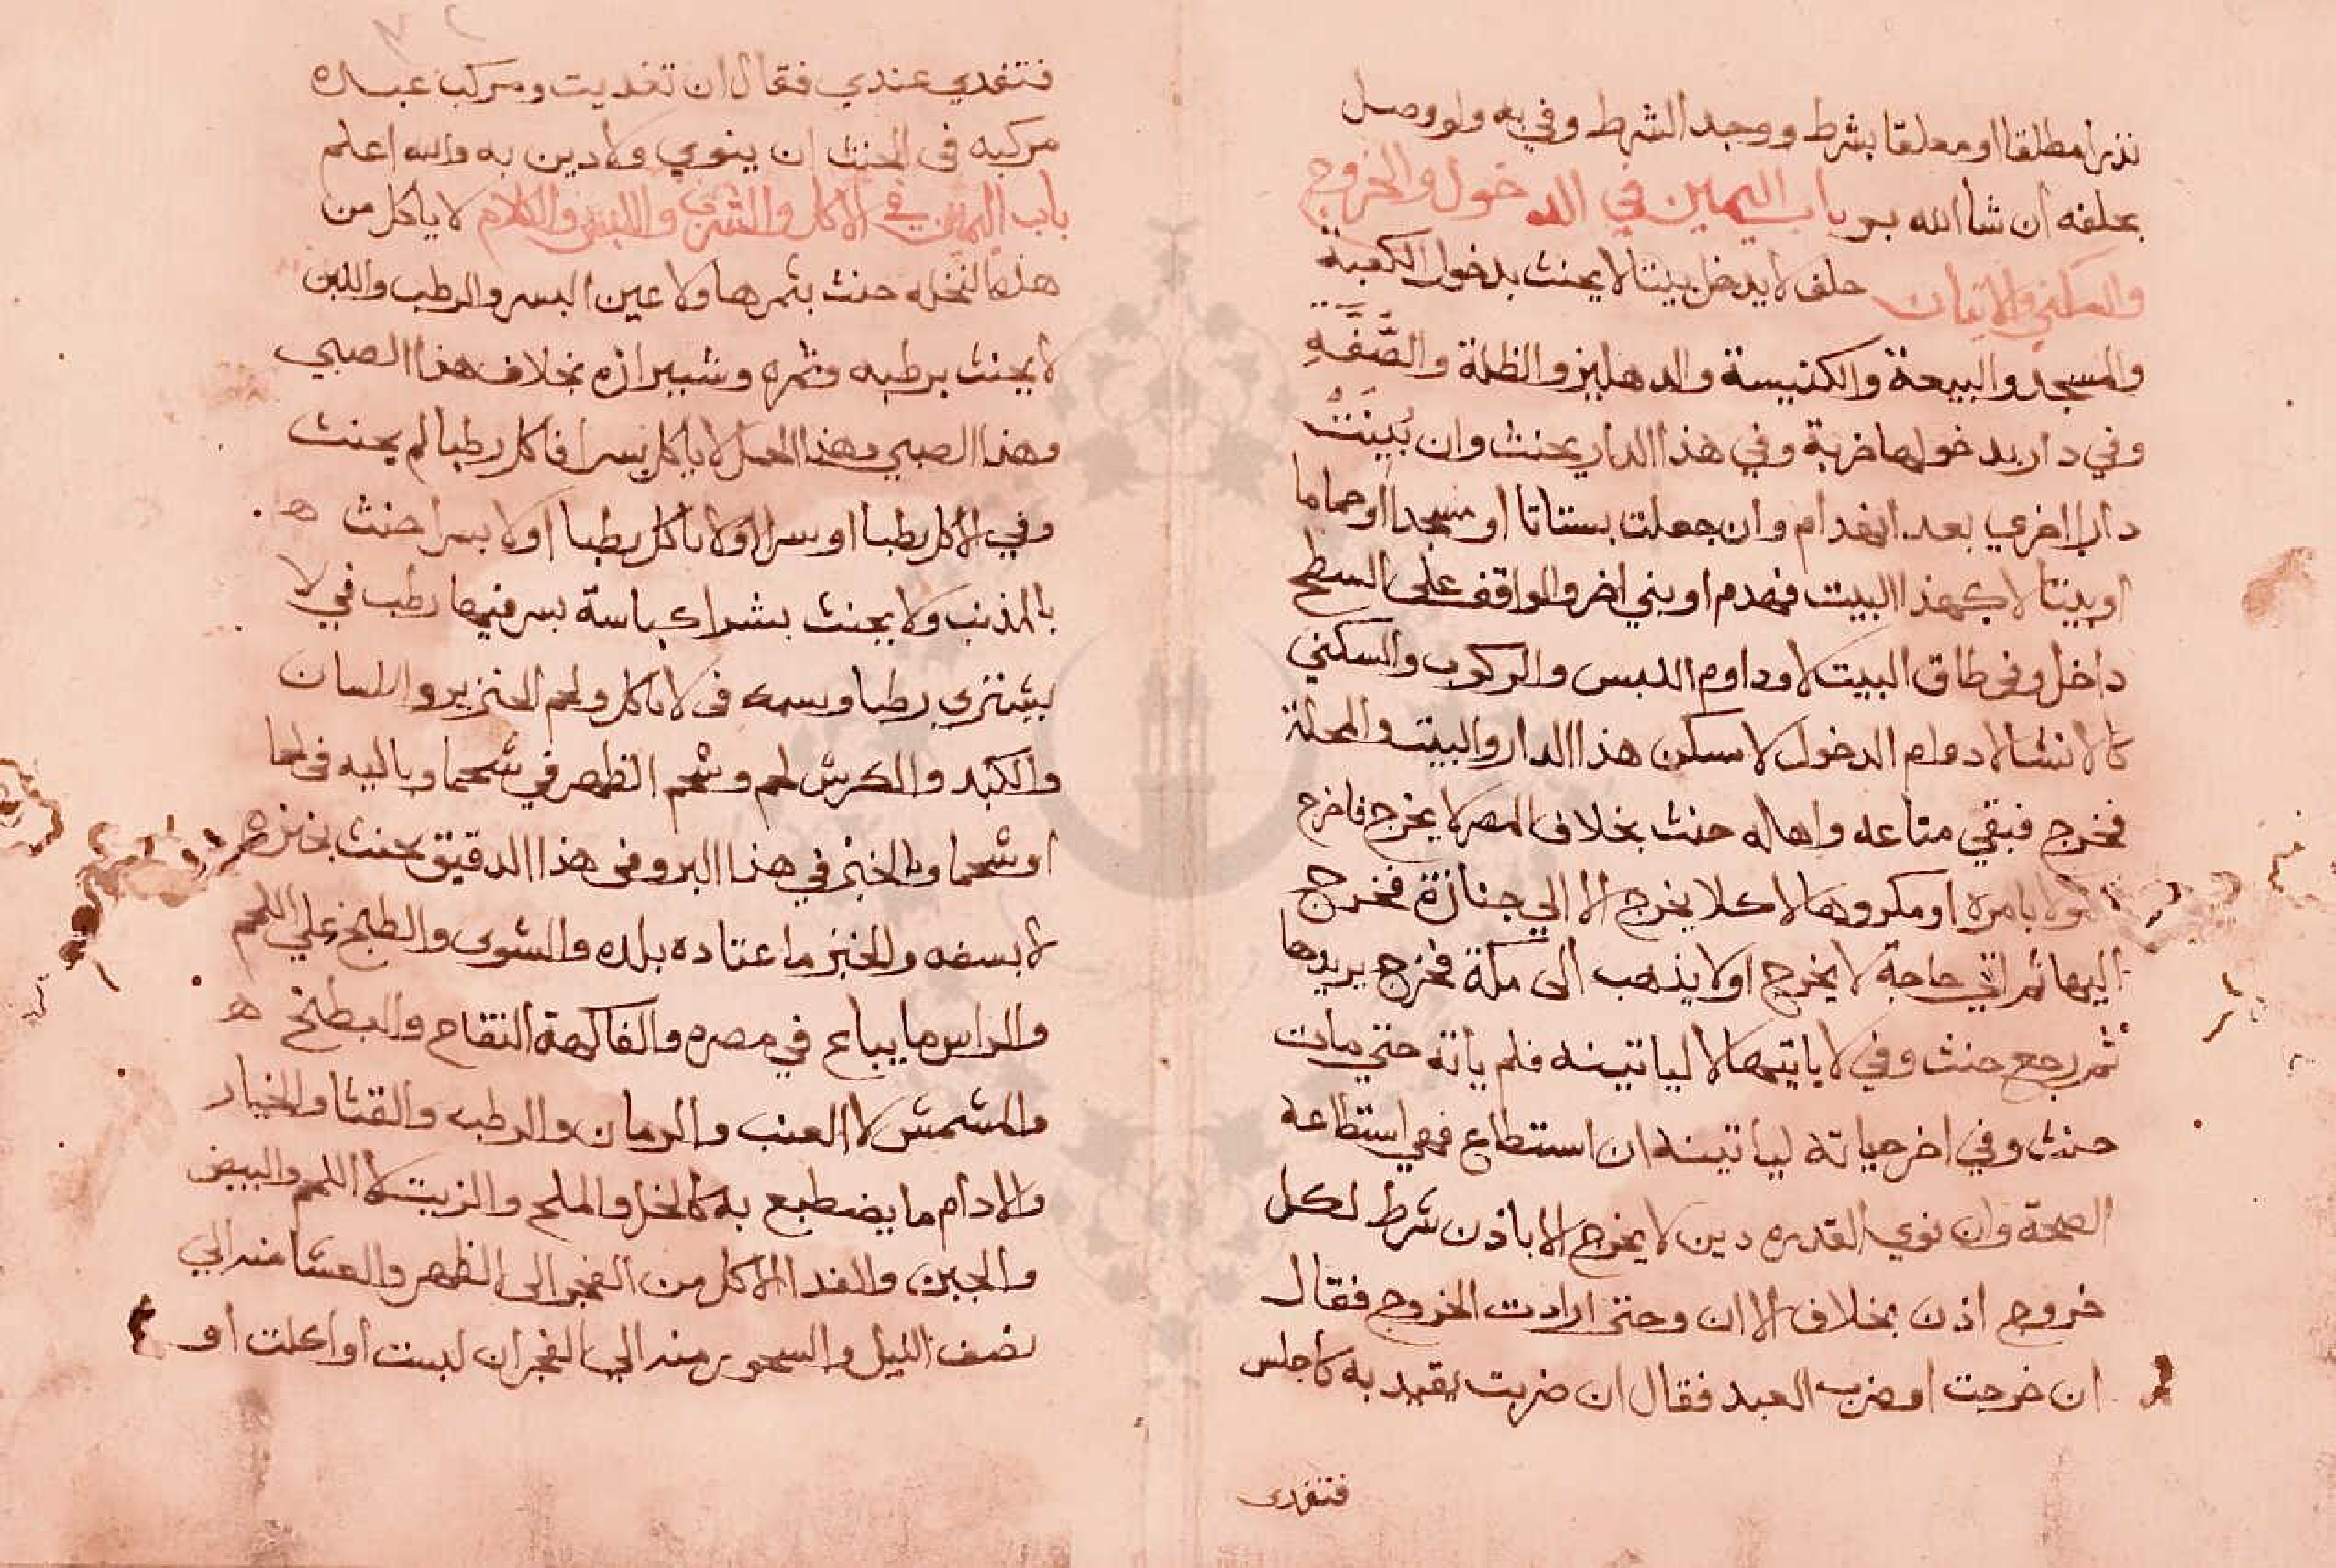 نذرا مطلقا او معلقا بشرط ووجد الشرط وفي به ولو وصل
بحلفه ان شا الله بر باب اليمين في الدخول والخروج
والسكني والاتيان حلف لا يدخل بيتا لا يحنث بدخول الكعبة
والمسجد والبيعة والكنيسة والدهليز والظلة والصَّفَّهِ
وفي دار بدخولها خربة وفي هذا الدار يحنث وان بُنِيَتْ
دارا اخري بعد الهدام وان جعلت بستانا او مسجدا او حماما
او بيتا لا كهذا البيت فهدم او بني اخر والواقف على السطح
داخل وفى طاق البيت لا ودوام اللبس والركوب والسكني
كالانشا لا دوام الدخول لا يسكن هذا الدار والبيت والمحلة
فخرج فبقي متاعه واهله حنث بخلاف المصر لا يخرج فاخرج
بامره او مكروها لا كلا يخرج الا الي جنازة فخرج
اليها ثم اتي حاجة لا يخرج او لا يذهب الى مكة فخرج يريدها
ثم رجع حنث وفي لا ياتيها لا لياتينه فلم ياته حتي مات
حنث وفي اخر حياته لياتينه ان استطاع فهي استطاعة
الصحة وان نوي القدره دين لا يخرج الا باذن شرط لكل
خروج اذن بخلاف الا ان وحتى ارادت الخروج فقال
ان خرجت او ضرب العبد فقال ان ضربت يقيد به كاجلس
فتغدى
فتغدي عندي فقال ان تغديت ومركب عبده
مركبه فى الحنث ان ينوي ولا دين به والله اعلم
باب اليمين في الاكل والشرب واللبس والكلام لا ياكل من
هذه النخله حنث بثمرها ولا عين البسر والرطب واللبن
لا يحنث برطبه وتمره وشيرازه بخلاف هذا الصبي
وهذا الصبي وهذا الحمل لا ياكل بسرا فاكل رطبا لم يحنث
وفي لا اكل رطبا او بسرا او لا ياكل رطبا او لا بسرا حنث ه
بالمذنب ولا يحنث بشرا كباسة بسر فيها رطب في لا
يشتري رطبا وبسمك فى لا ياكل ولحم الخنزير والانسان
والكبد والكرش لحم وشحم الظهر في شحما وباليه فى لحما
او شحما وبالخبز في هذا البر وفى هذا الدقيق يحنث بخبزه
لا بسفه والخبز ما عتاده بلده والشوى والطبخ علي اللحم
والراس ما يباع في مصره والفاكهة التفاح والبطيخ ه
والمشمش لا العنب والرمان والرطب والقثا والخيار
والادام ما يضطبع به كالخل والملح والزيت لا اللحم والبيض
والجبن والغدا الاكل من الفجر الى الظهر والعشا منه الي
نصف الليل والسحور منه الي الفجر ان لبست او اكلت او